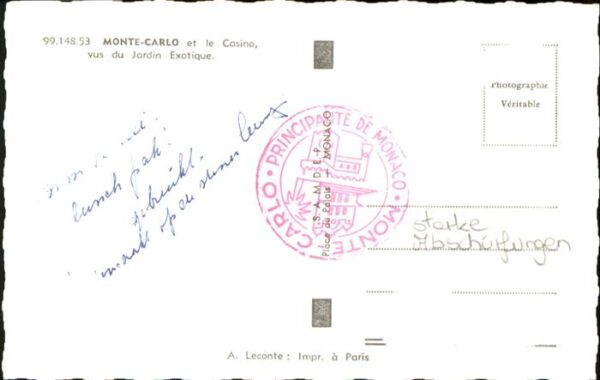 99.148.53 MONTE-CARLO et le Casino,
vus du Jardin Exotique.
Photographie
Véritable
lunch pak.
gebruikt.
op de
PRINCIPAUTÉ DE MONACO
MONTE CARLO
S.A.M.D.E.P.
Place du Palais + MONACO
starke
Abschürfungen
A. Leconte : Impr. à Paris